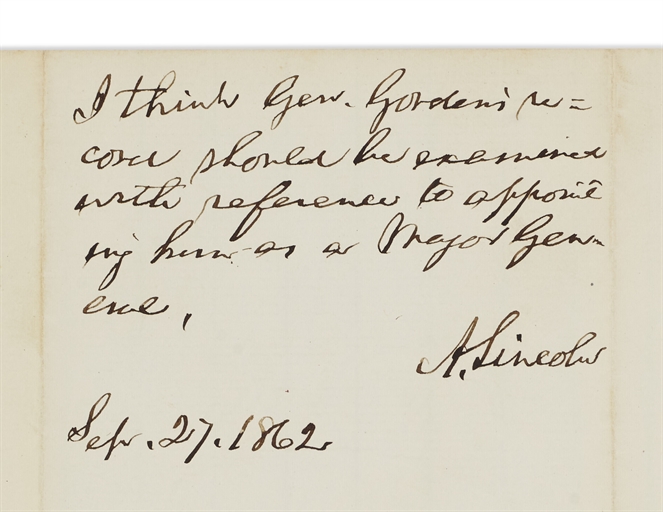 I think Gen. Gorden's re=
cord should be examined
with reference to appoint
ing him as a Major Gen=
eral,
A. Lincoln
Sep. 27. 1862